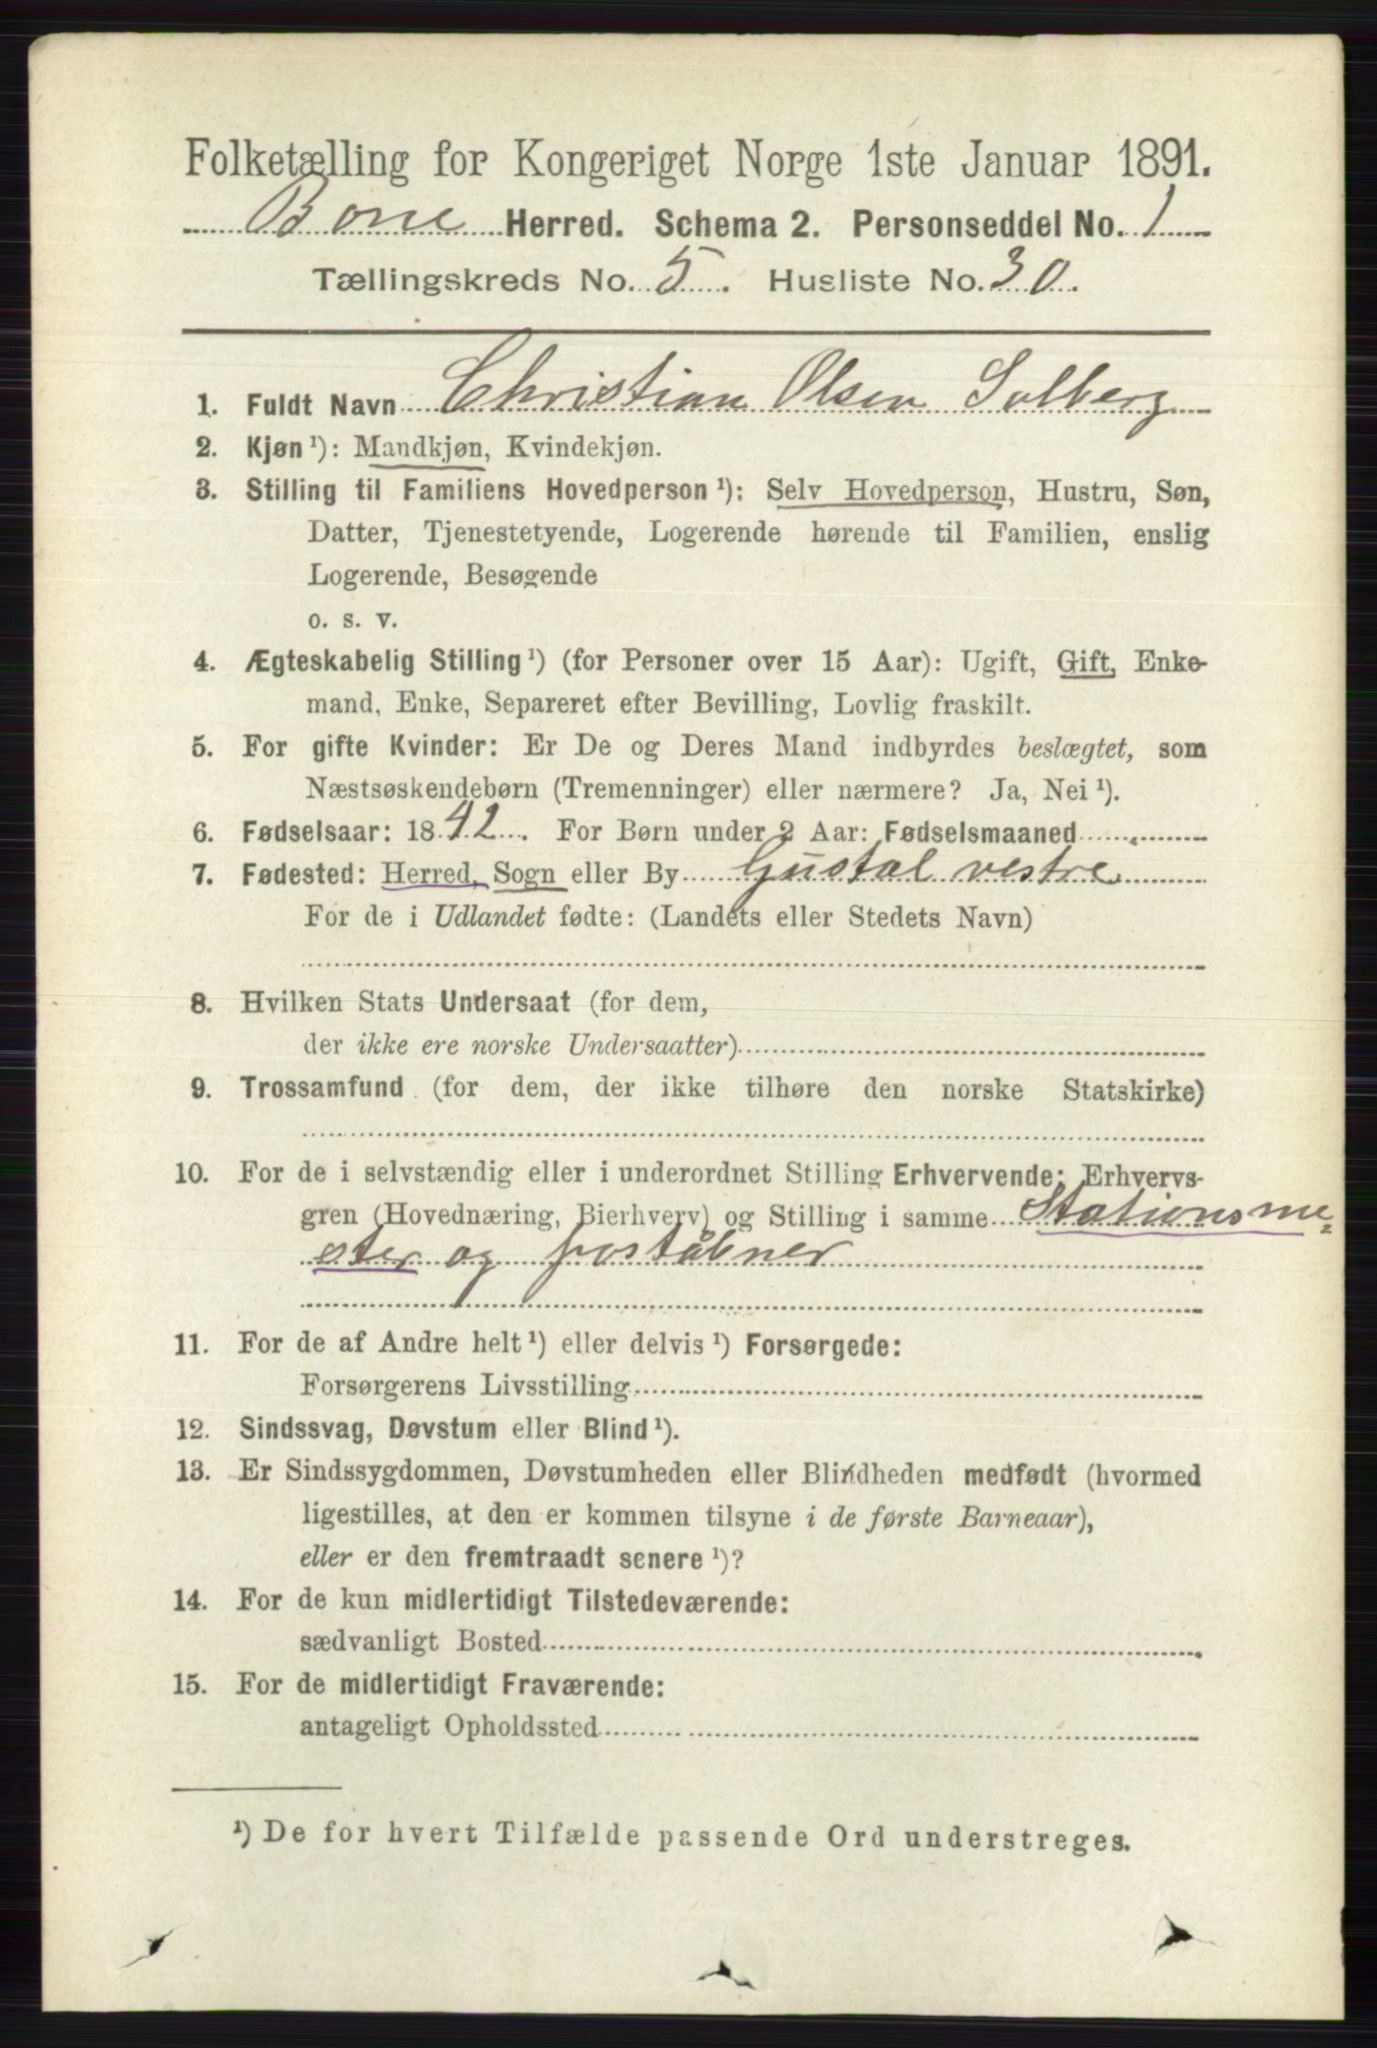 Folketælling for Kongeriget Norge 1ste Januar 1891.
Borre Herred. Schema 2. Personseddel No. 1
Tællingskreds No. 5. Husliste No. 30.
1. Fuldt Navn Christian Olsen Solberg
2. Kjøn ¹): Mandkjøn, Kvindekjøn.
3. Stilling til Familiens Hovedperson ¹): Selv Hovedperson, Hustru, Søn,
Datter, Tjenestetyende, Logerende hørende til Familien, enslig
Logerende, Besøgende
o. s. v.
4. Ægteskabelig Stilling ¹) (for Personer over 15 Aar): Ugift, Gift, Enke-
mand, Enke, Separeret efter Bevilling, Lovlig fraskilt.
5. For gifte Kvinder: Er De og Deres Mand indbyrdes beslægtet, som
Næstsøskendebørn (Tremenninger) eller nærmere? Ja, Nei ¹).
6. Fødselsaar: 1842. For Børn under 2 Aar: Fødselsmaaned
7. Fødested: Herred, Sogn eller By vestre
For de i Udlandet fødte: (Landets eller Stedets Navn)
8. Hvilken Stats Undersaat (for dem,
der ikke ere norske Undersaatter)
9. Trossamfund (for dem, der ikke tilhøre den norske Statskirke)
10. For de i selvstændig eller i underordnet Stilling Erhvervende: Erhvervs-
gren (Hovednæring, Bierhverv) og Stilling i samme Stationsme-
ster og poståbner
11. For de af Andre helt ¹) eller delvis ¹) Forsørgede:
Forsørgerens Livsstilling
12. Sindssvag, Døvstum eller Blind ¹).
13. Er Sindssygdommen, Døvstumheden eller Blindheden medfødt (hvormed
ligestilles, at den er kommen tilsyne i de første Barneaar),
eller er den fremtraadt senere ¹)?
14. For de kun midlertidigt Tilstedeværende:
sædvanligt Bosted
15. For de midlertidigt Fraværende:
antageligt Opholdssted
¹) De for hvert Tilfælde passende Ord understreges.